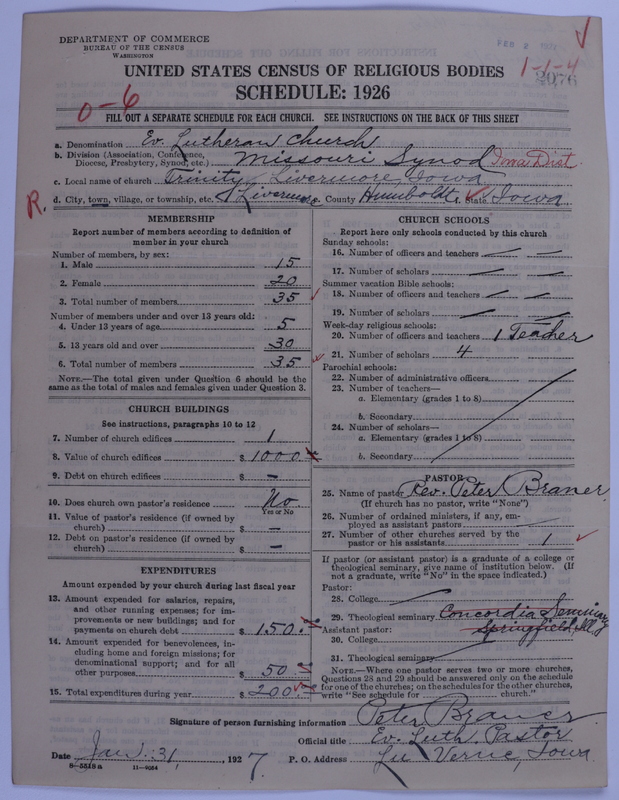 DEPARTMENT OF COMMERCE
BUREAU OF THE CENSUS
WASHINGTON
FEB 2 1927
1-1-4
2076
UNITED STATES CENSUS OF RELIGIOUS BODIES
SCHEDULE: 1926
0-6
FILL OUT A SEPARATE SCHEDULE FOR EACH CHURCH. SEE INSTRUCTIONS ON THE BACK OF THIS SHEET
a. Denomination Ev. Lutheran Church
b. Division (Association, Conference, Diocese, Presbytery, Synod, etc.) Missouri Synod Iowa Dist.
c. Local name of church Trinity, Livermore, Iowa
R. d. City, town, village, or township, etc. Livermore County Humboldt State Iowa
MEMBERSHIP
Report number of members according to definition of
member in your church
Number of members, by sex:
1. Male 15
2. Female 20
3. Total number of members 35
Number of members under and over 13 years old:
4. Under 13 years of age 5
5. 13 years old and over 30
6. Total number of members 35
NOTE.—The total given under Question 6 should be
same as the total of males and females given under Question 3.
CHURCH BUILDINGS
See instructions, paragraphs 10 to 12
7. Number of church edifices 1
8. Value of church edifices $ 1000
9. Debt on church edifices $ —
10. Does church own pastor's residence No
Yes or No
11. Value of pastor's residence (if owned by
church) $ —
12. Debt on pastor's residence (if owned by
church) $ —
EXPENDITURES
Amount expended by your church during last fiscal year
13. Amount expended for salaries, repairs,
and other running expenses; for im-
provements or new buildings; and for
payments on church debt $ 150.
14. Amount expended for benevolences, in-
cluding home and foreign missions; for
denominational support; and for all
other purposes $ 50
15. Total expenditures during year $ 200
CHURCH SCHOOLS
Report here only schools conducted by this church
Sunday schools:
16. Number of officers and teachers — —
17. Number of scholars — —
Summer vacation Bible schools:
18. Number of officers and teachers — —
19. Number of scholars — —
Week-day religious schools:
20. Number of officers and teachers 1 Teacher
21. Number of scholars 4
Parochial schools:
22. Number of administrative officers
23. Number of teachers—
a. Elementary (grades 1 to 8)
b. Secondary
24. Number of scholars—
a. Elementary (grades 1 to 8)
b. Secondary
PASTOR
25. Name of pastor Rev. Peter Braner
(If church has no pastor, write "None")
26. Number of ordained ministers, if any, em-
ployed as assistant pastors —
27. Number of other churches served by the
pastor or his assistants 1
If pastor (or assistant pastor) is a graduate of a college or
theological seminary, give name of institution below. (If
not a graduate, write "No" in the space indicated.)
Pastor:
28. College —
29. Theological seminary Concordia Seminary
Assistant pastor: Springfield, Ill.
30. College
31. Theological seminary
NOTE.—Where one pastor serves two or more churches,
Questions 28 and 29 should be answered only on the schedule
for one of the churches; on the schedules for the other churches,
write "See schedule for church."
Signature of person furnishing information Peter Braner
Official title Ev. Luth. Pastor
Date Jan. 31, 1927 P. O. Address Lu Verne, Iowa.
8-5518 a 11-9054